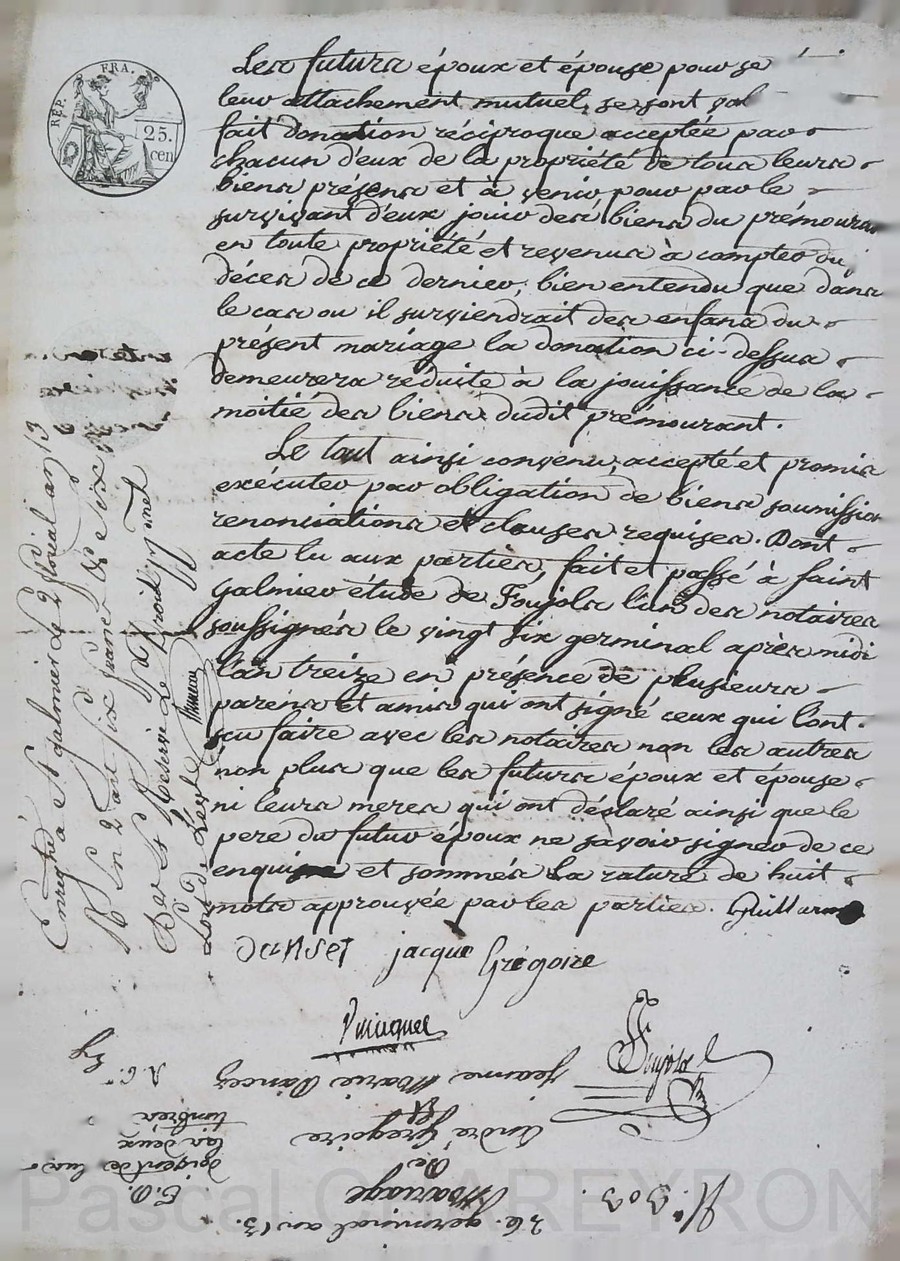 REP. FRA.
25.
cen
Les futurs époux et épouse pour se
leur attachement mutuel, se sont
fait donation réciproque acceptée par
chacun d'eux de la propriété de tous leurs
biens présens et à venir pour par le
survivant d'eux jouir des biens du prémourant
en toute propriété et revenus à compter du
décès de ce dernier, bien entendu que dans
le cas ou il surviendrait des enfans du
présent mariage la donation ci-dessus
demeurera réduite à la jouissance de la
moitié des biens dudit prémourant.
Le tout ainsi convenu, accepté et promis
exécuter par obligation de biens soumissions
renonciations et clauses requises. Dont
acte lu aux parties, fait et passé à saint
galmier étude de Pujols l'un des notaires
soussignés le vingt six germinal après midi
l'an treize en présence de plusieurs
parens et amis qui ont signé ceux qui l'ont
scu faire avec les notaires non les autres
non plus que les futurs époux et épouse
ni leurs meres qui ont déclaré ainsi que le
pere du futur époux ne savoir signer de ce
enquis et sommés la rature de huit
mots approuvée par les parties. Guillaume
danset jacque Grégoire
Enregistré à St galmier le 2 floréal an 13
Reçu
Pujols
26. germinal an 13.
N.° 303.
Mariage
De
André Gregoire
Et
Jeanne Marie Dancer
E.D.
les deux
timbres